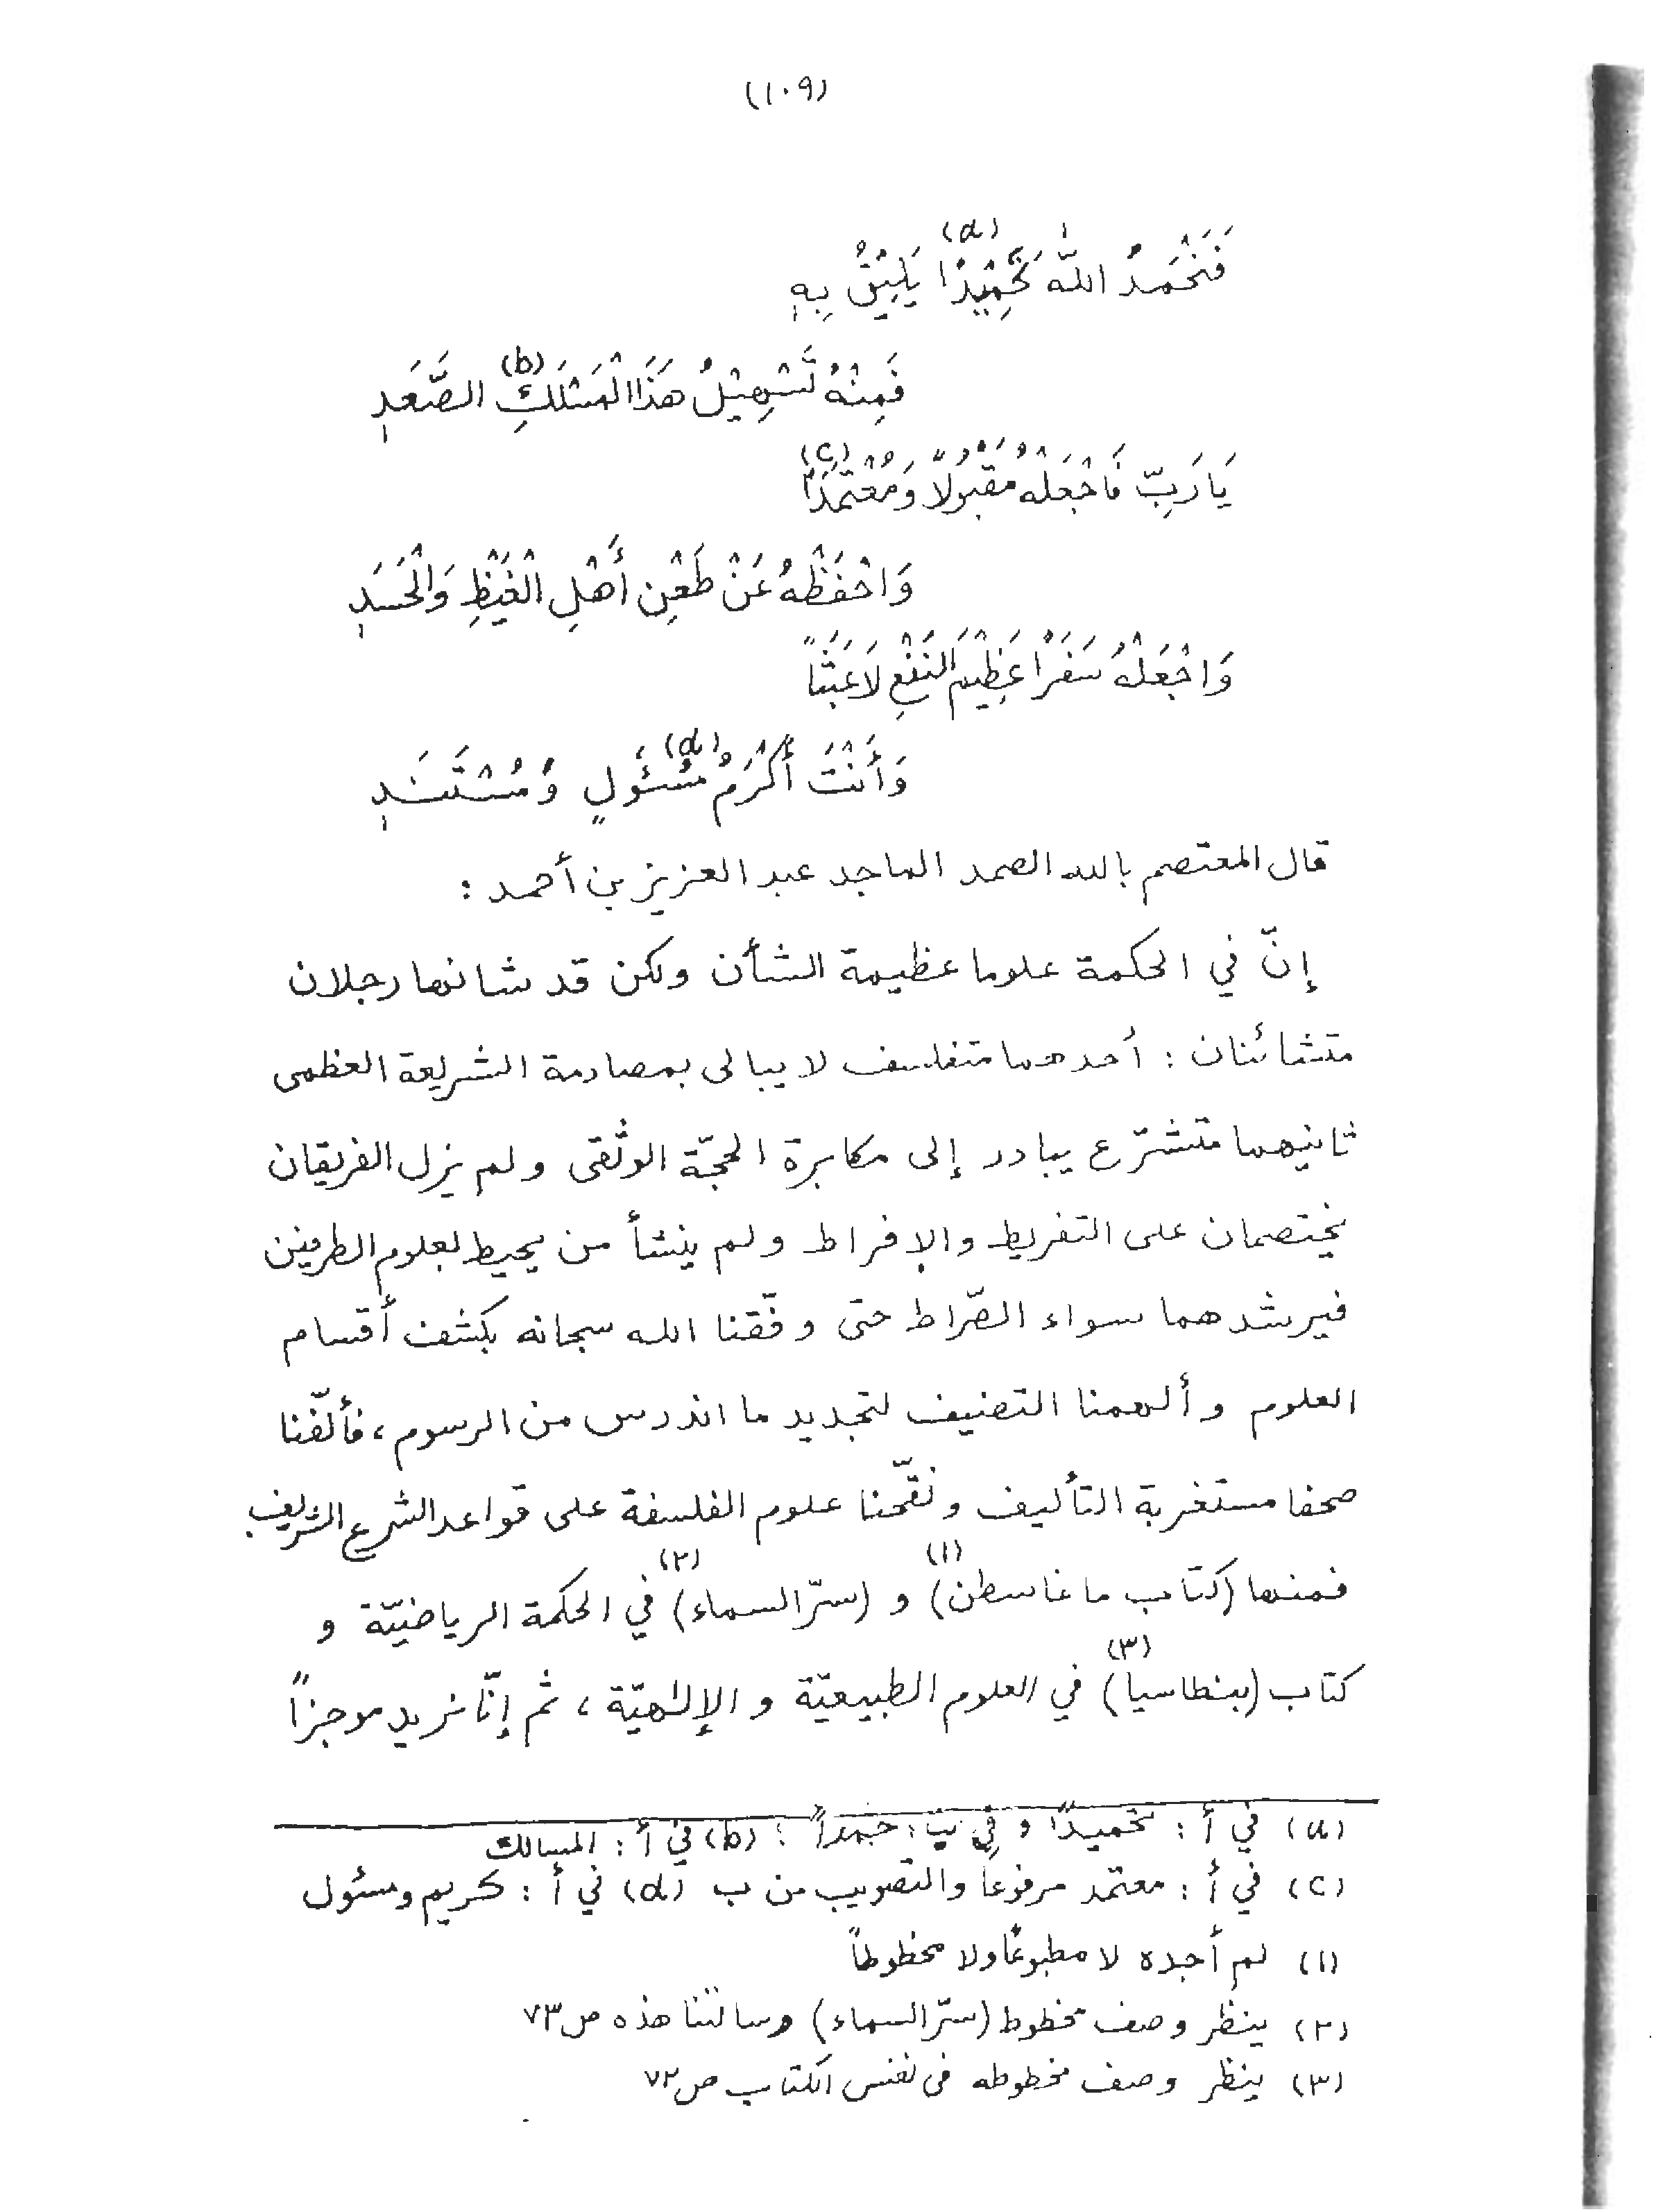 (١٠٩)
فَنَحْمَدُ اللّٰهَ تَحْمِيْدًا(a) يَلِيْقُ بِهٖ
فَمِنْهُ تَسْهِيْلُ هَذَا الْمَسْلَكِ(b) الصَّعَدِ
يَا رَبِّ فَاجْعَلْهُ مَقْبُوْلاً وَمُعْتَمَدًا(c)
وَاحْفَظْهُ عَنْ طَعْنِ أَهْلِ الْغَيْظِ وَالْحَسَدِ
وَاجْعَلْهُ سَفَرًا عَظِيْمَ النَفْعِ لَا عَبَثًا
وَأَنْتَ أَكْرَمُ مَسْئُولٍ(d) وَمُسْتَنَدِ
قال المعتصم بالله الصمد الماجد عبد العزيز بن أحمد :
إنّ في الحكمة علوما عظيمة الشأن ولكن قد شانها رجلان
متشائنان : أحدهما متفلسف لا يبالى بمصادمة الشريعة العظمى
ثانيهما متشرّع يبادر إلى مكابرة الحجّة الوثقى ولم يزل الفريقان
يختصمان على التفريط والإفراط ولم ينشأ من يحيط بعلوم الطرفين
فيرشدهما سواء الصّراط حتى وفّقنا الله سبحانه بكشف أقسام
العلوم وألهمنا التصنيف لتجديد ما اندرس من الرسوم، فألّفنا
صحفا مستغربة التأليف ونقّحنا علوم الفلسفة على قواعد الشرع الشريف
فمنها (كتاب ماغاسطن)(١) و (سرّ السماء)(٢) في الحكمة الرياضيّة و
كتاب (بنطاسيا)(٣) في العلوم الطبيعيّة و الإلٰهيّة ، ثم إنّا نريد موجزاً
(a) في أ : تحميدًا و في ب : حمداً : (b) في أ : المسالك
(c) في أ : معتمد مرفوعا والتصويب من ب (d) في أ : كريم ومسئول
(١) لم أجده لا مطبوعًا ولا مخطوطاً
(٢) ينظر وصف مخطوط (سرّ السماء) رسالتنا هذه ص ٧٣
(٣) ينظر وصف مخطوطه في نفس الكتاب ص ٧٢